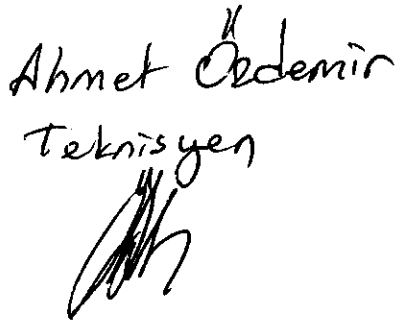 Ahmet Özdemir
Teknisyen